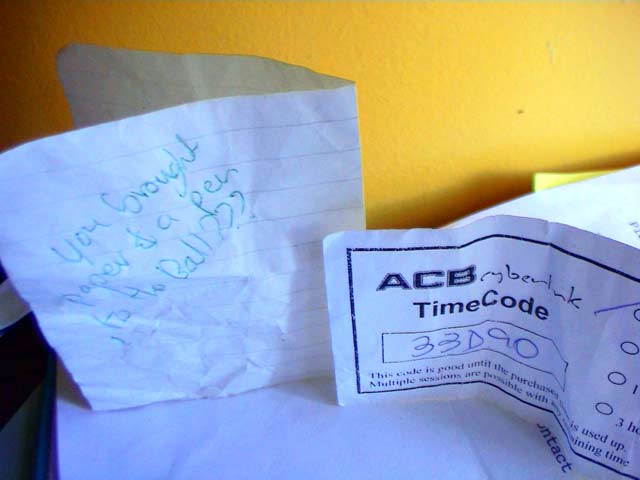 You brought
paper & a pen
to the Ball???
ACB cyberlink
TimeCode
33D90
This code is good until the purchased
is used up.
Multiple sessions are possible with any
ining time
3 ho
ontact